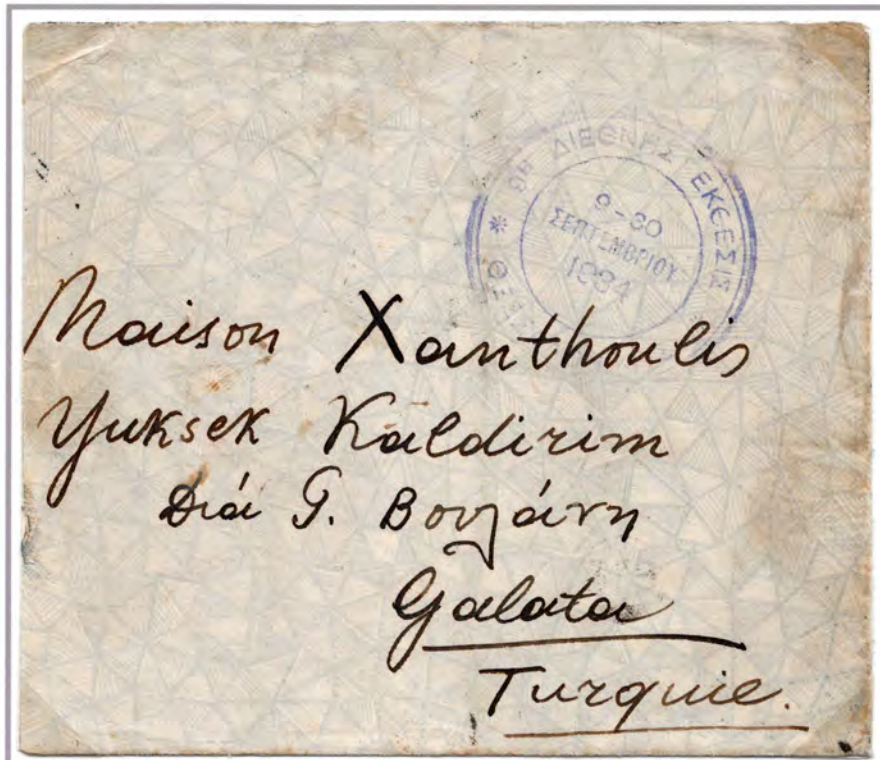 9Η ΔΙΕΘΝΗΣ ΕΚΘΕΣΙΣ
9-30
ΣΕΠΤΕΜΒΡΙΟΥ
1934
Maison Xanthoulis
Yuksek Kaldirim
Διά G.
Galata
Turquie.